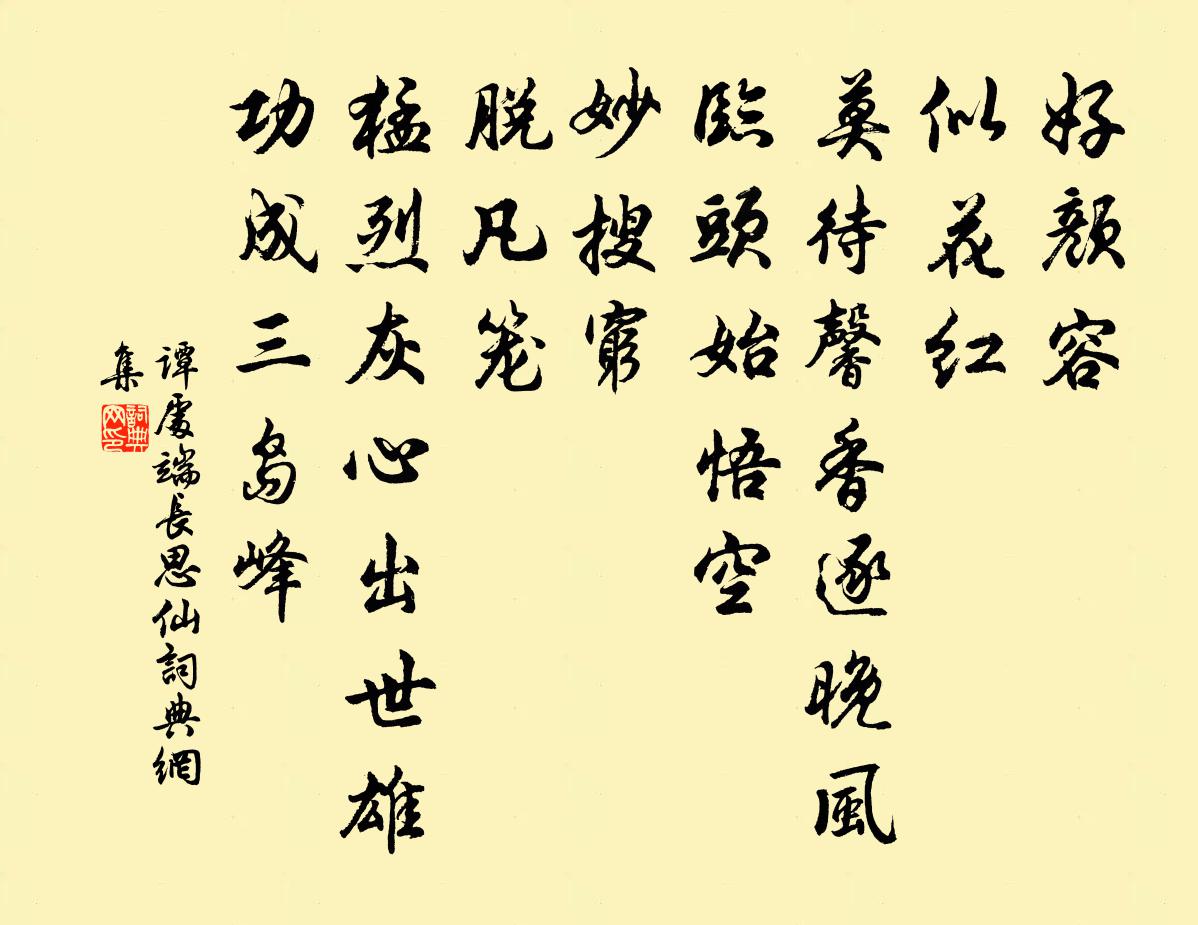 好顔容
似花红
莫待馨香逐晚風
臨頭始悟空
妙搜窮
脱凡笼
猛烈灰心出世雄
功成三岛峰
譚處端長思仙詞典網
集
詞典网印